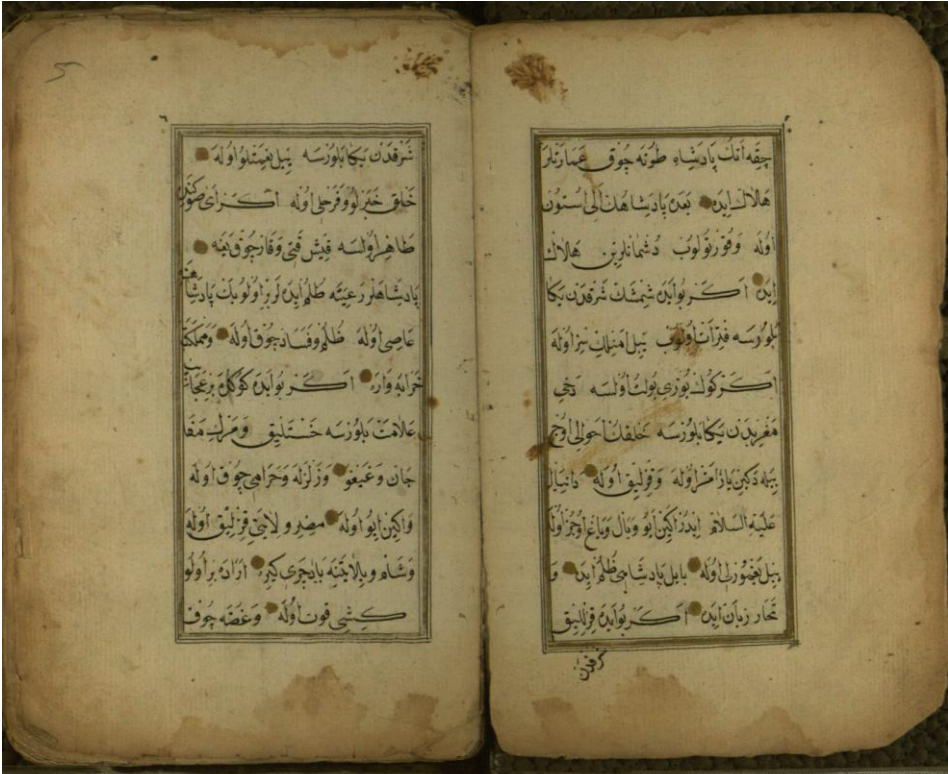 چقه آنك پادشاه طونه چوق عمارتلر
هلاك ايده بعده پادشاهلك الى استون
اوله و قورتولوب دشمانلرين هلاك
ايده اكر بو آيده شمشك شرقدن يكا
بلورسه فترات اولوب ييل امنلك سز اوله
اكر كوك يوزى بولت اولسه دخى
مغربدن يكا بلورسه خلقك احوالى اوچ
ييله دكين يارامز اوله و قزليق اوله دانيال
عليه السلام ايدر اكين ايو و بال و ياغ اوجز اوله
ييل يغمورلى اوله بابل پادشاهى ظلم ايده و
تجار زيان ايده اكر بو آيده قزلليق
شرقدن
5
شرقدن يكا بلورسه ييل نعمتلو اوله
خلق خيرلو و فرحلى اوله اكر آى
طاهر اولسه قيش قتى و قار چوق يغه
پادشاهلر رعيته ظلم ايده لر بر اولو بك پادشاهنه
عاصى اوله ظلم و فساد چوق اوله و مملكت
خرابه واره اكر بو آيده كوكده بر عجايب
علامت بلورسه خستليق و مرك مفا
جان و غيغو و زلزله و حرامى چوق اوله
و اكين ايو اوله مصر ولايتى قزليق اوله
و شام ولايتنه يابجرى كيره اراده بر اولو
كشى فوت اوله و غصه چوق